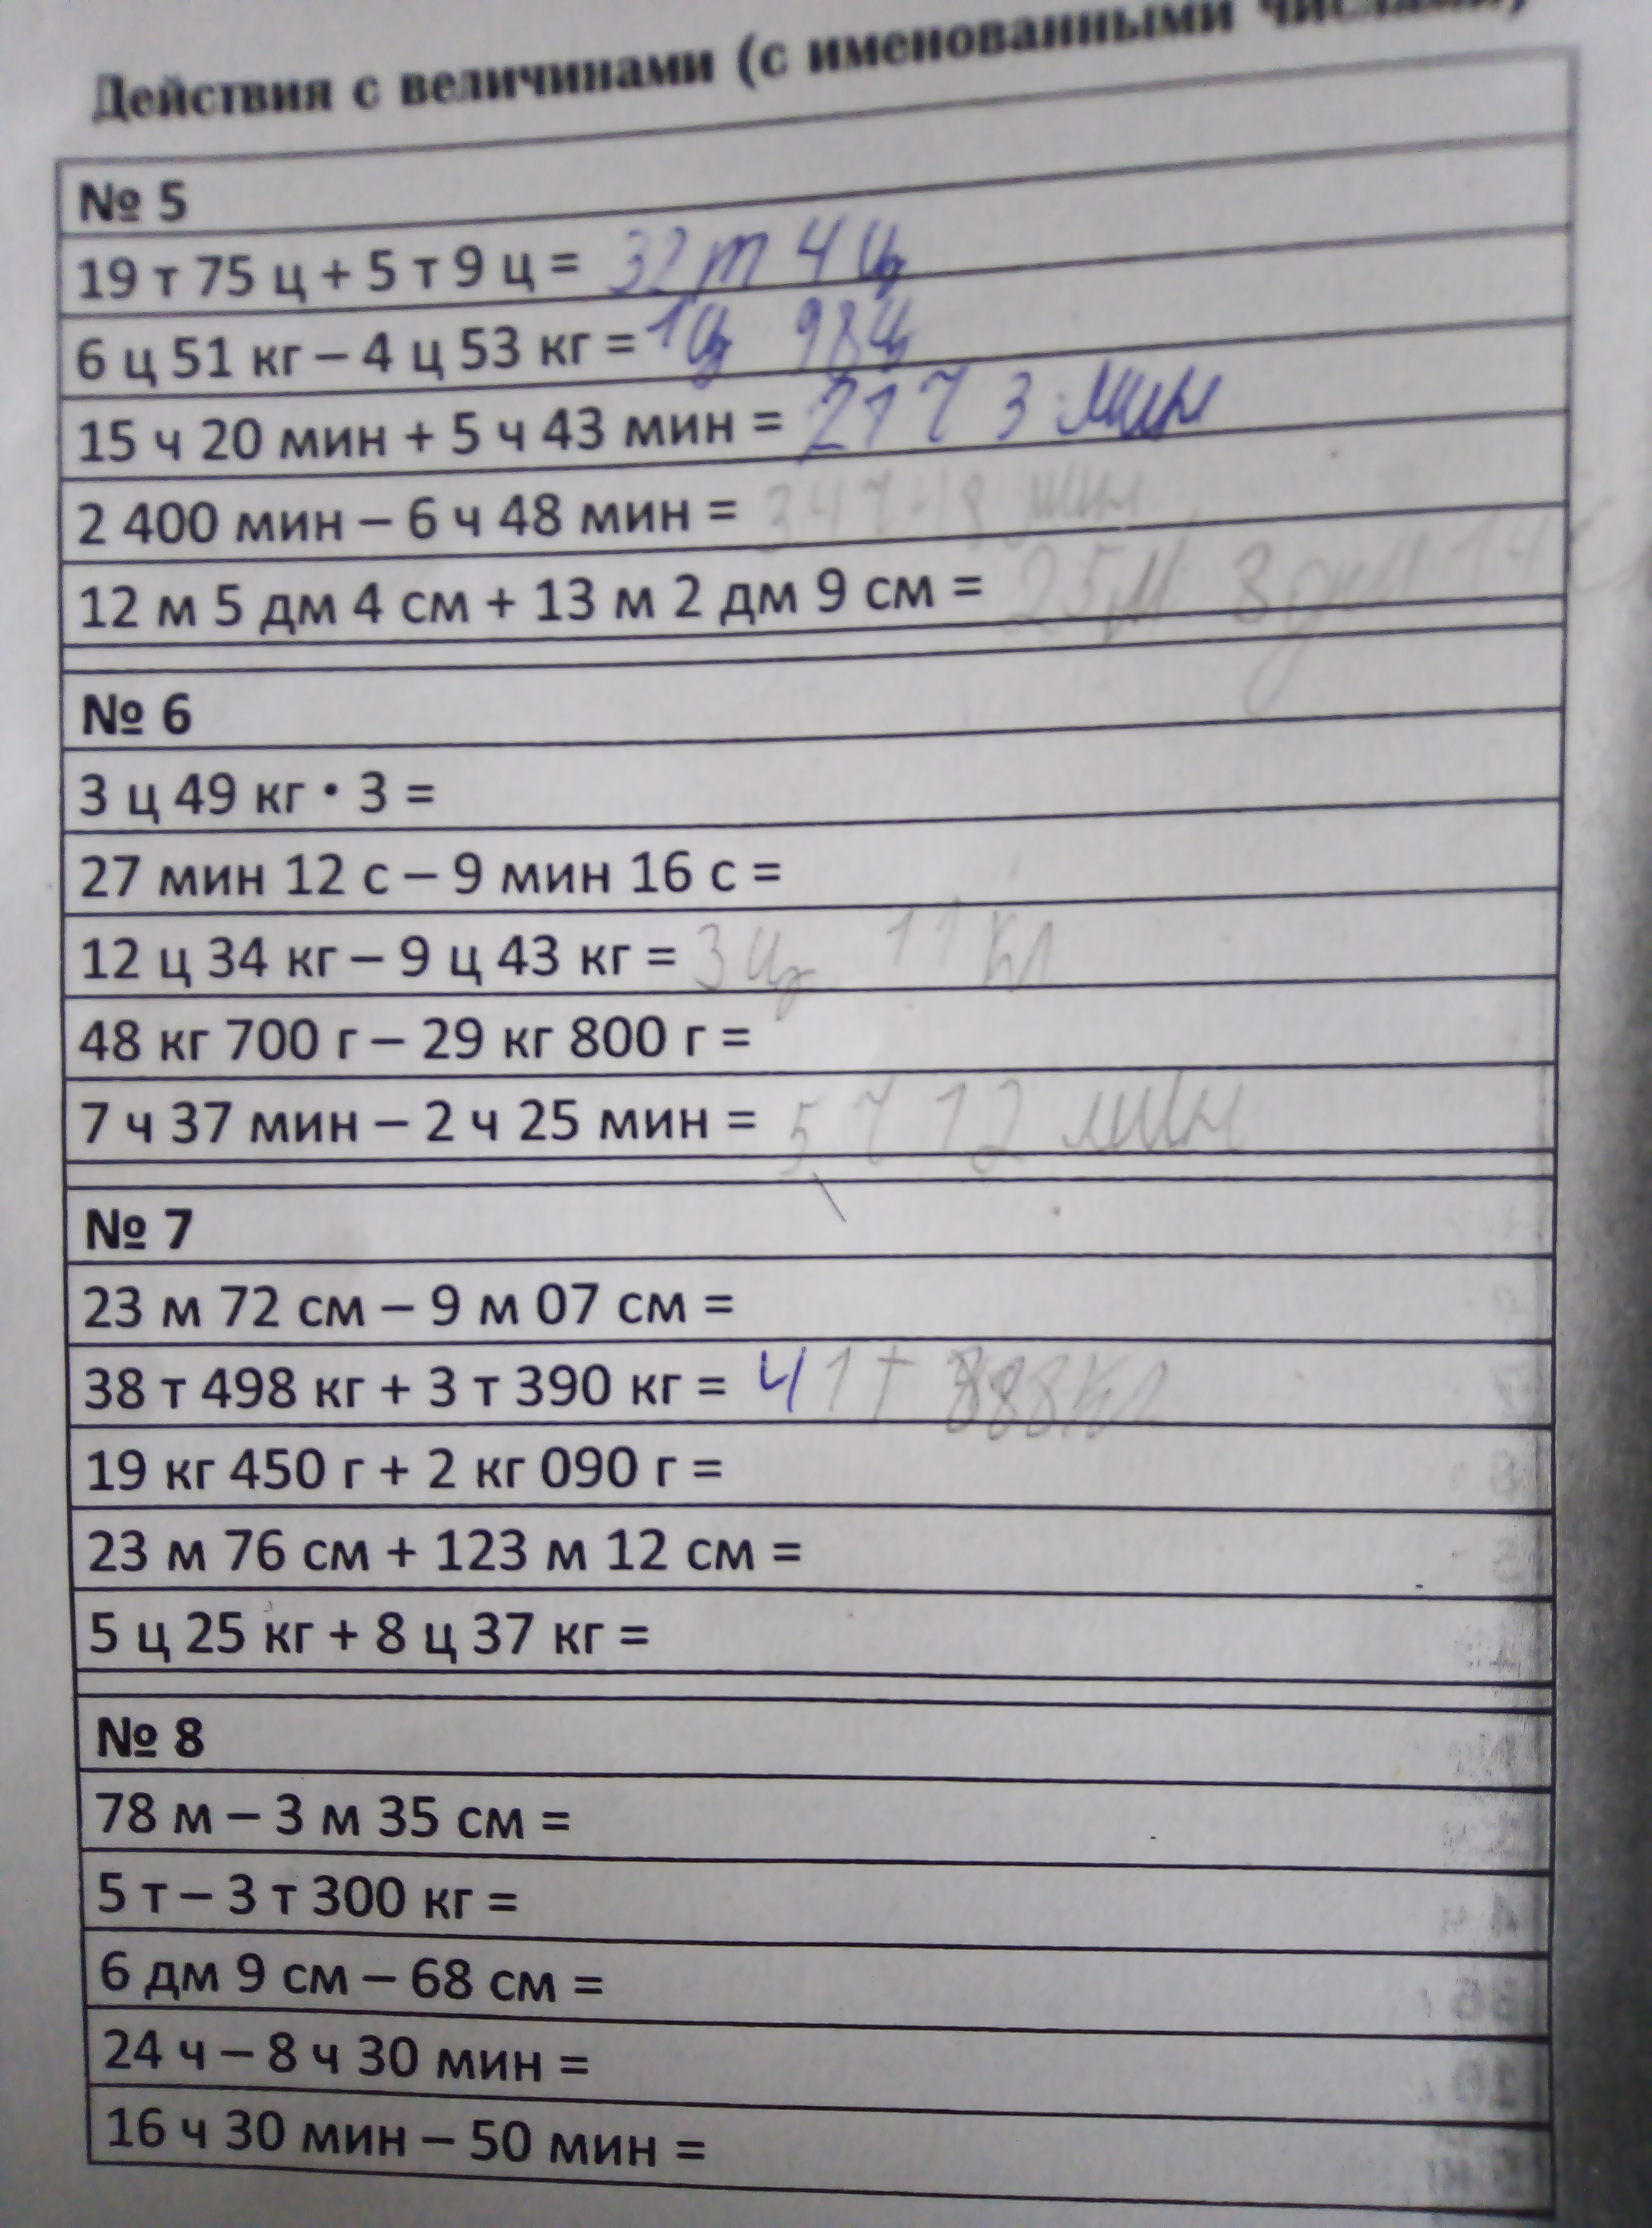 Действия с величинами (с именованными числами)
№ 5
19 т 75 ц + 5 т 9 ц = 32 т 4 ц
6 ц 51 кг – 4 ц 53 кг = 1ц 98ц
15 ч 20 мин + 5 ч 43 мин = 21 ч 3 мин
2 400 мин – 6 ч 48 мин = 34 ч 48 мин
12 м 5 дм 4 см + 13 м 2 дм 9 см = 25м 3 дм 14
№ 6
3 ц 49 кг · 3 =
27 мин 12 с – 9 мин 16 с =
12 ц 34 кг – 9 ц 43 кг = 3 ц 11 кг
48 кг 700 г – 29 кг 800 г =
7 ч 37 мин – 2 ч 25 мин = 5 ч 12 мин
№ 7
23 м 72 см – 9 м 07 см =
38 т 498 кг + 3 т 390 кг = 41т 888кг
19 кг 450 г + 2 кг 090 г =
23 м 76 см + 123 м 12 см =
5 ц 25 кг + 8 ц 37 кг =
№ 8
78 м – 3 м 35 см =
5 т – 3 т 300 кг =
6 дм 9 см – 68 см =
24 ч – 8 ч 30 мин =
16 ч 30 мин – 50 мин =